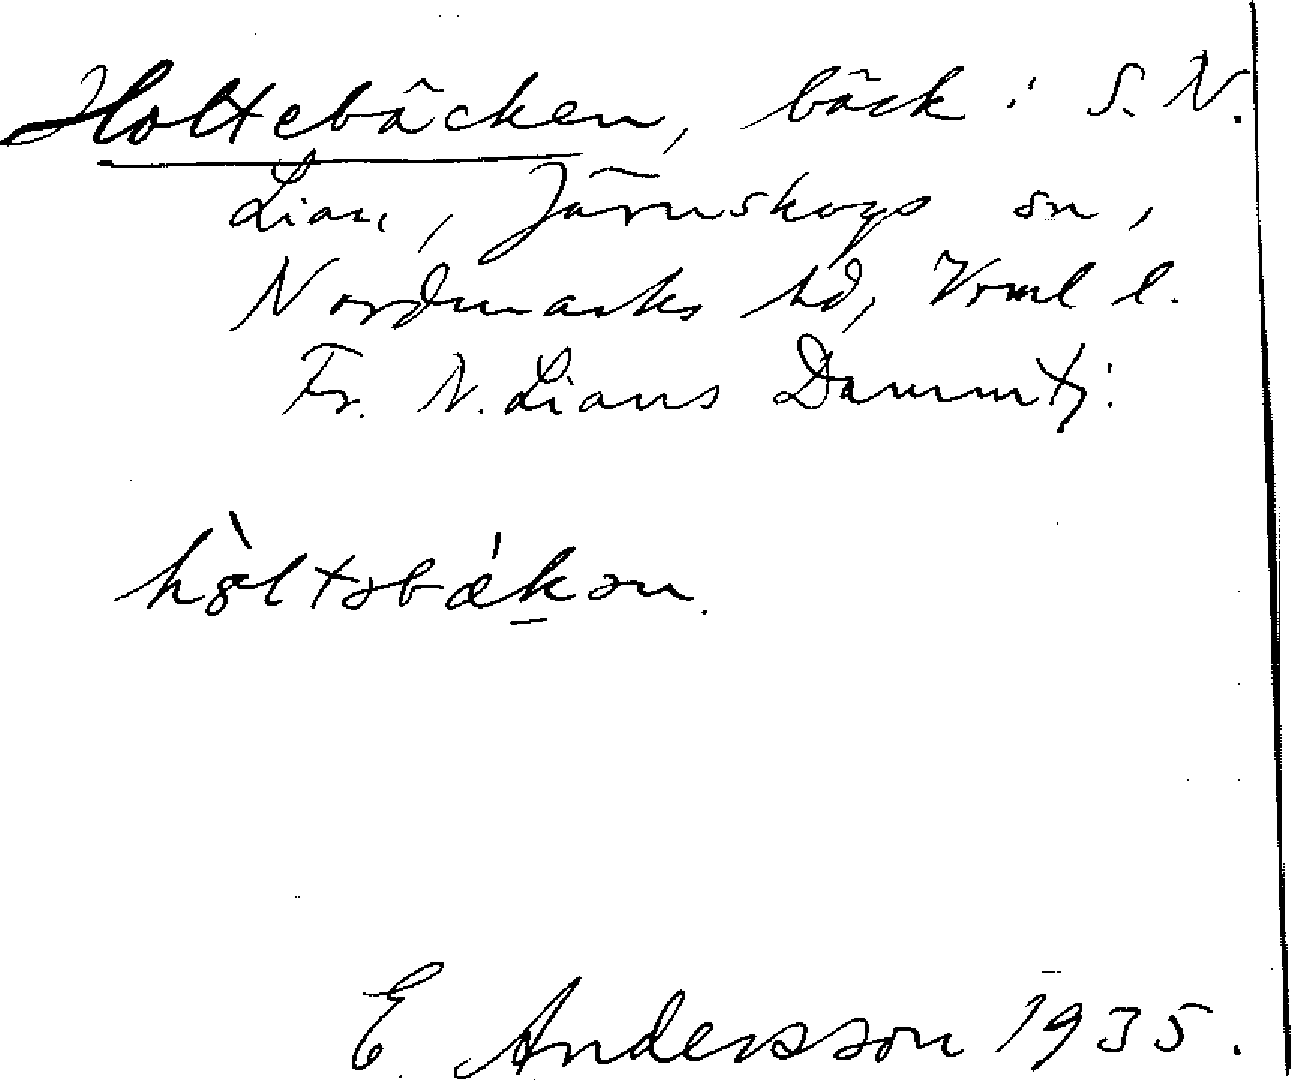 Holtebäcken, bäck i S. N.
Lian, Järnskogs sn,
Nordmarks hd, Vrml l.
Fr. N. Lians Dammtj.
E Andersson 1935.